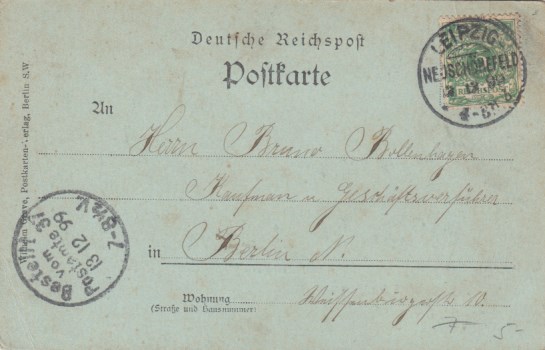 Deutsche Reichspost
Postkarte
LEIPZIG-
NEUSCHÖNEFELD
12.99
4-5N
An
Herrn Bruno Bollenhagen
Kaufman u Geschäftsverführer
in Berlin N.
Wohnung
(Straße und Hausnummer)
Weissenburgerstr 10.
Bestellt
vom
Postamte 37
13 12 99
7-8½V.
Postkarten-Verlag, Berlin S.W
5-